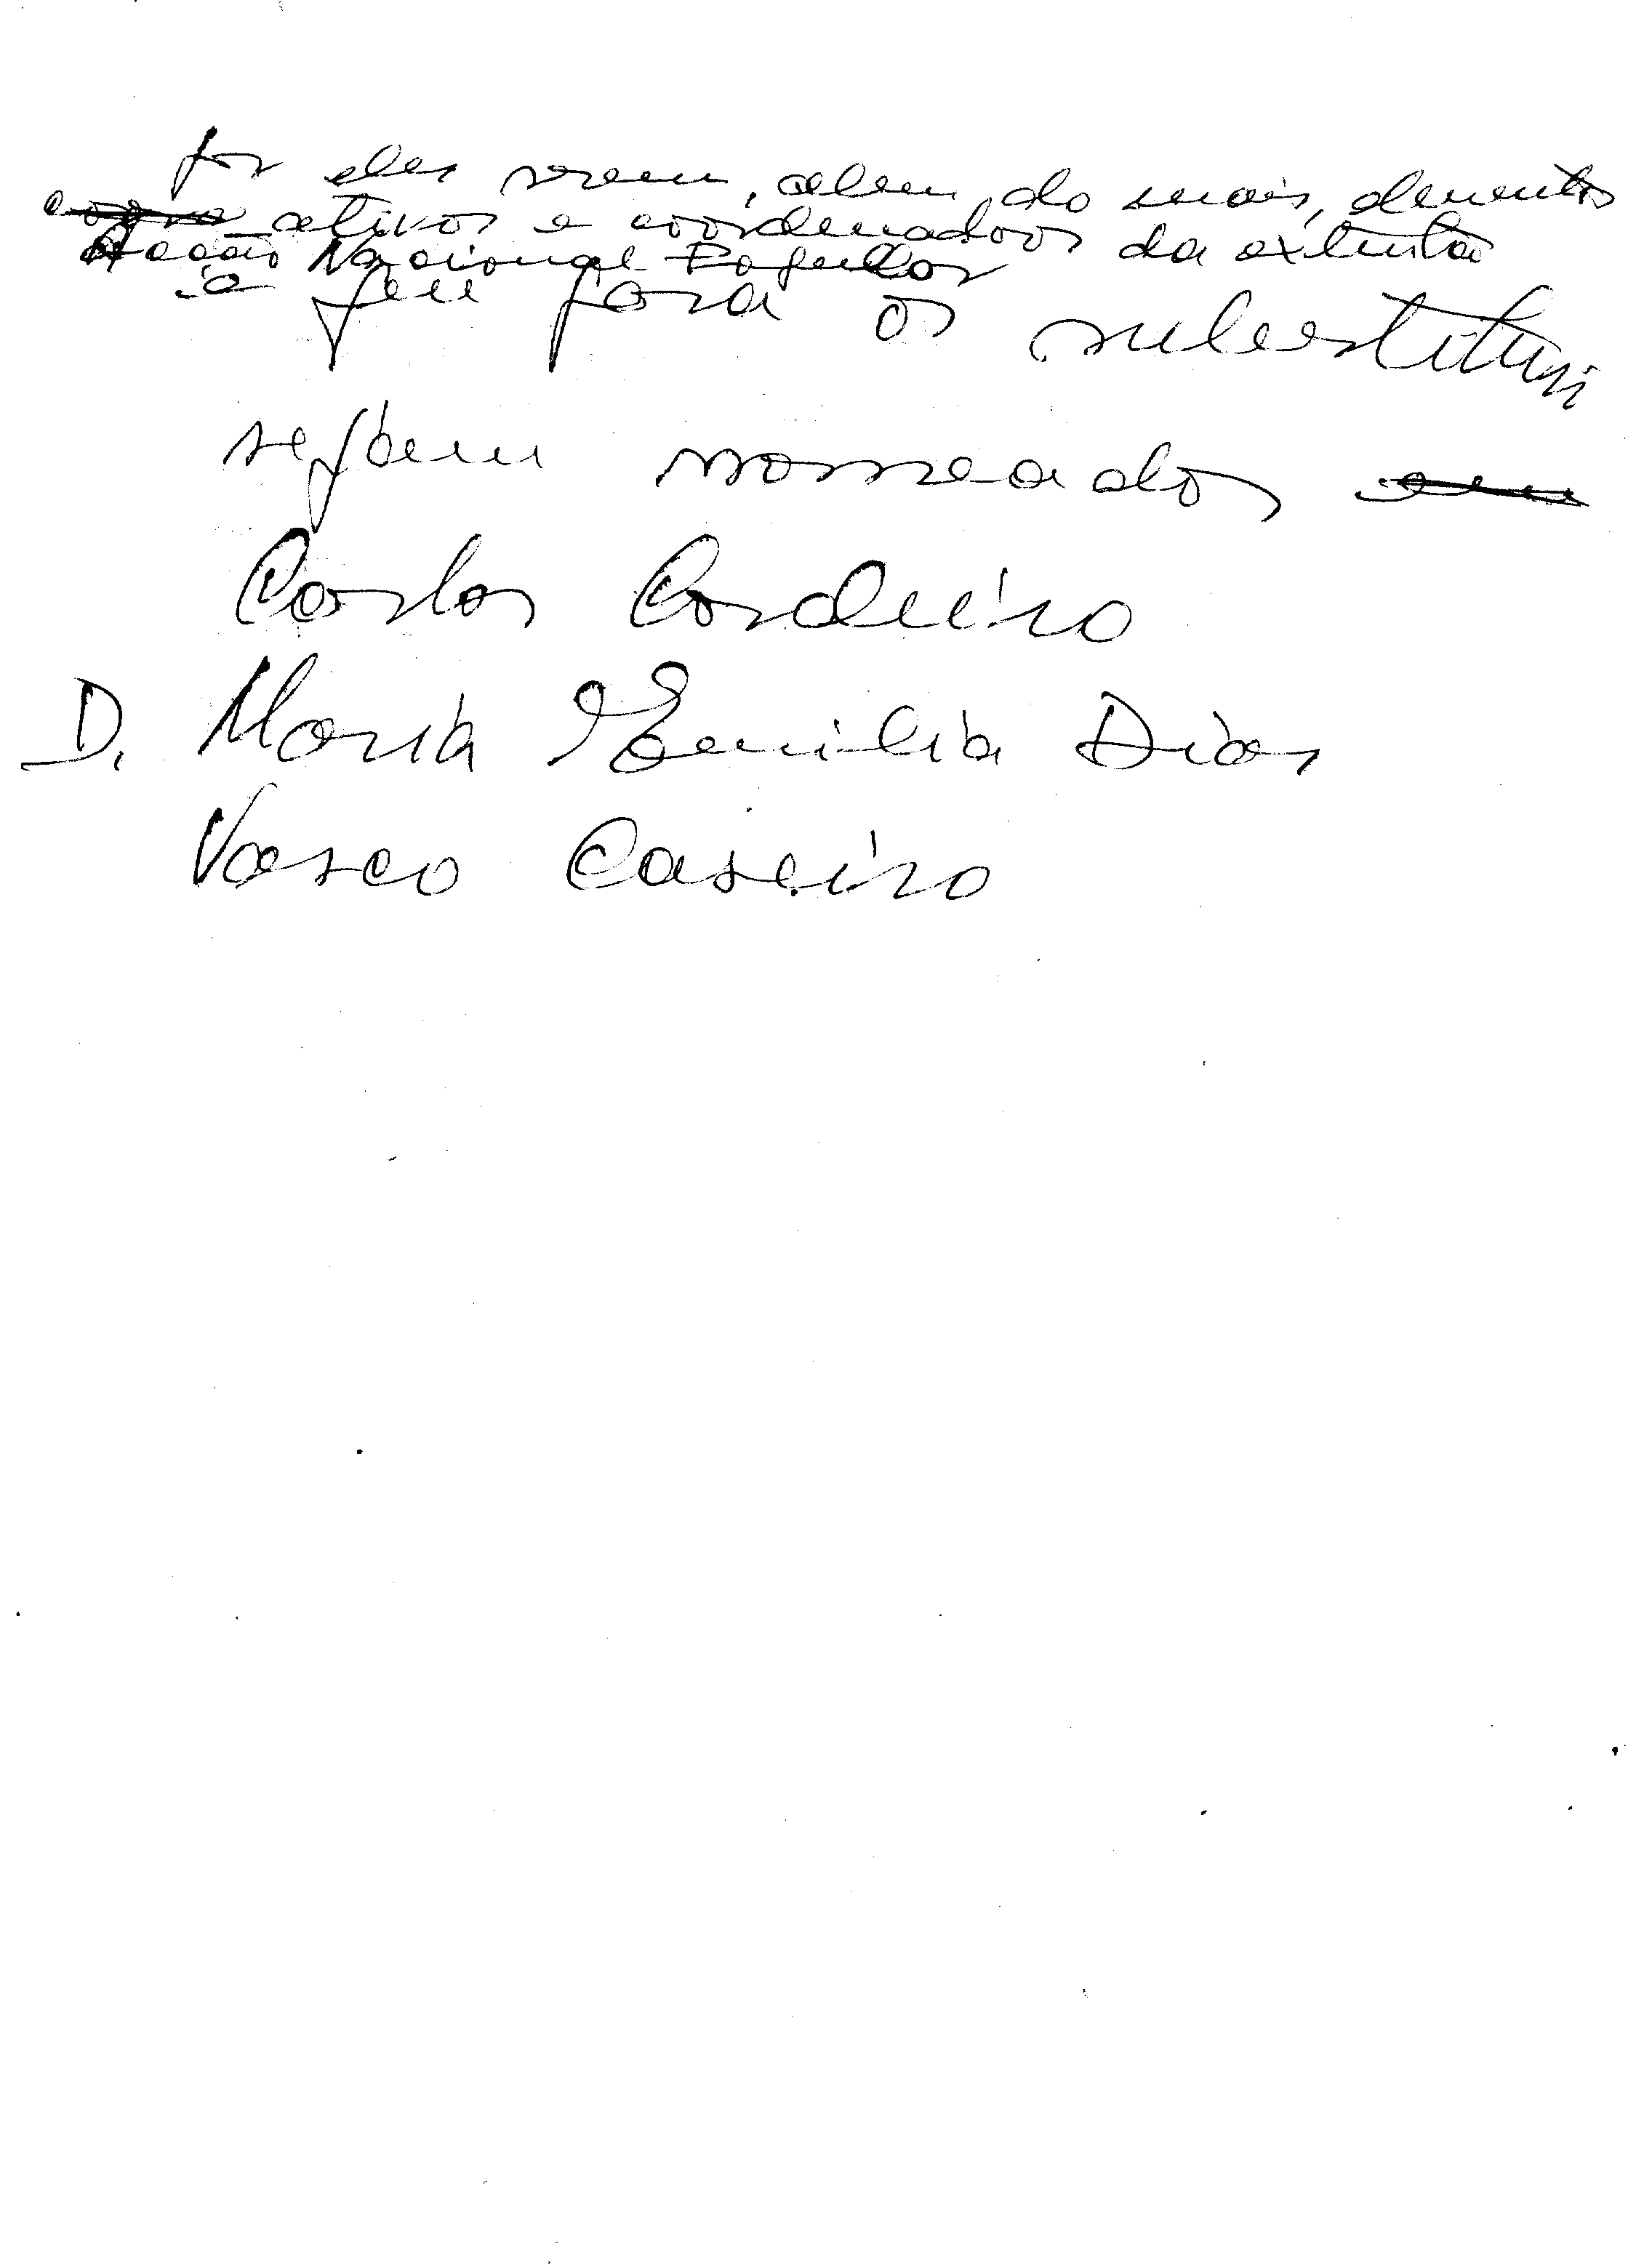 por eles serem, além do mais, elementos
ativos e coordenadores da extinta
Acção Nacional Popular
e que para os substituir
sejam nomeados
Carlos Cordeiro
D. Maria Emilia Dias
Vasco Caseiro